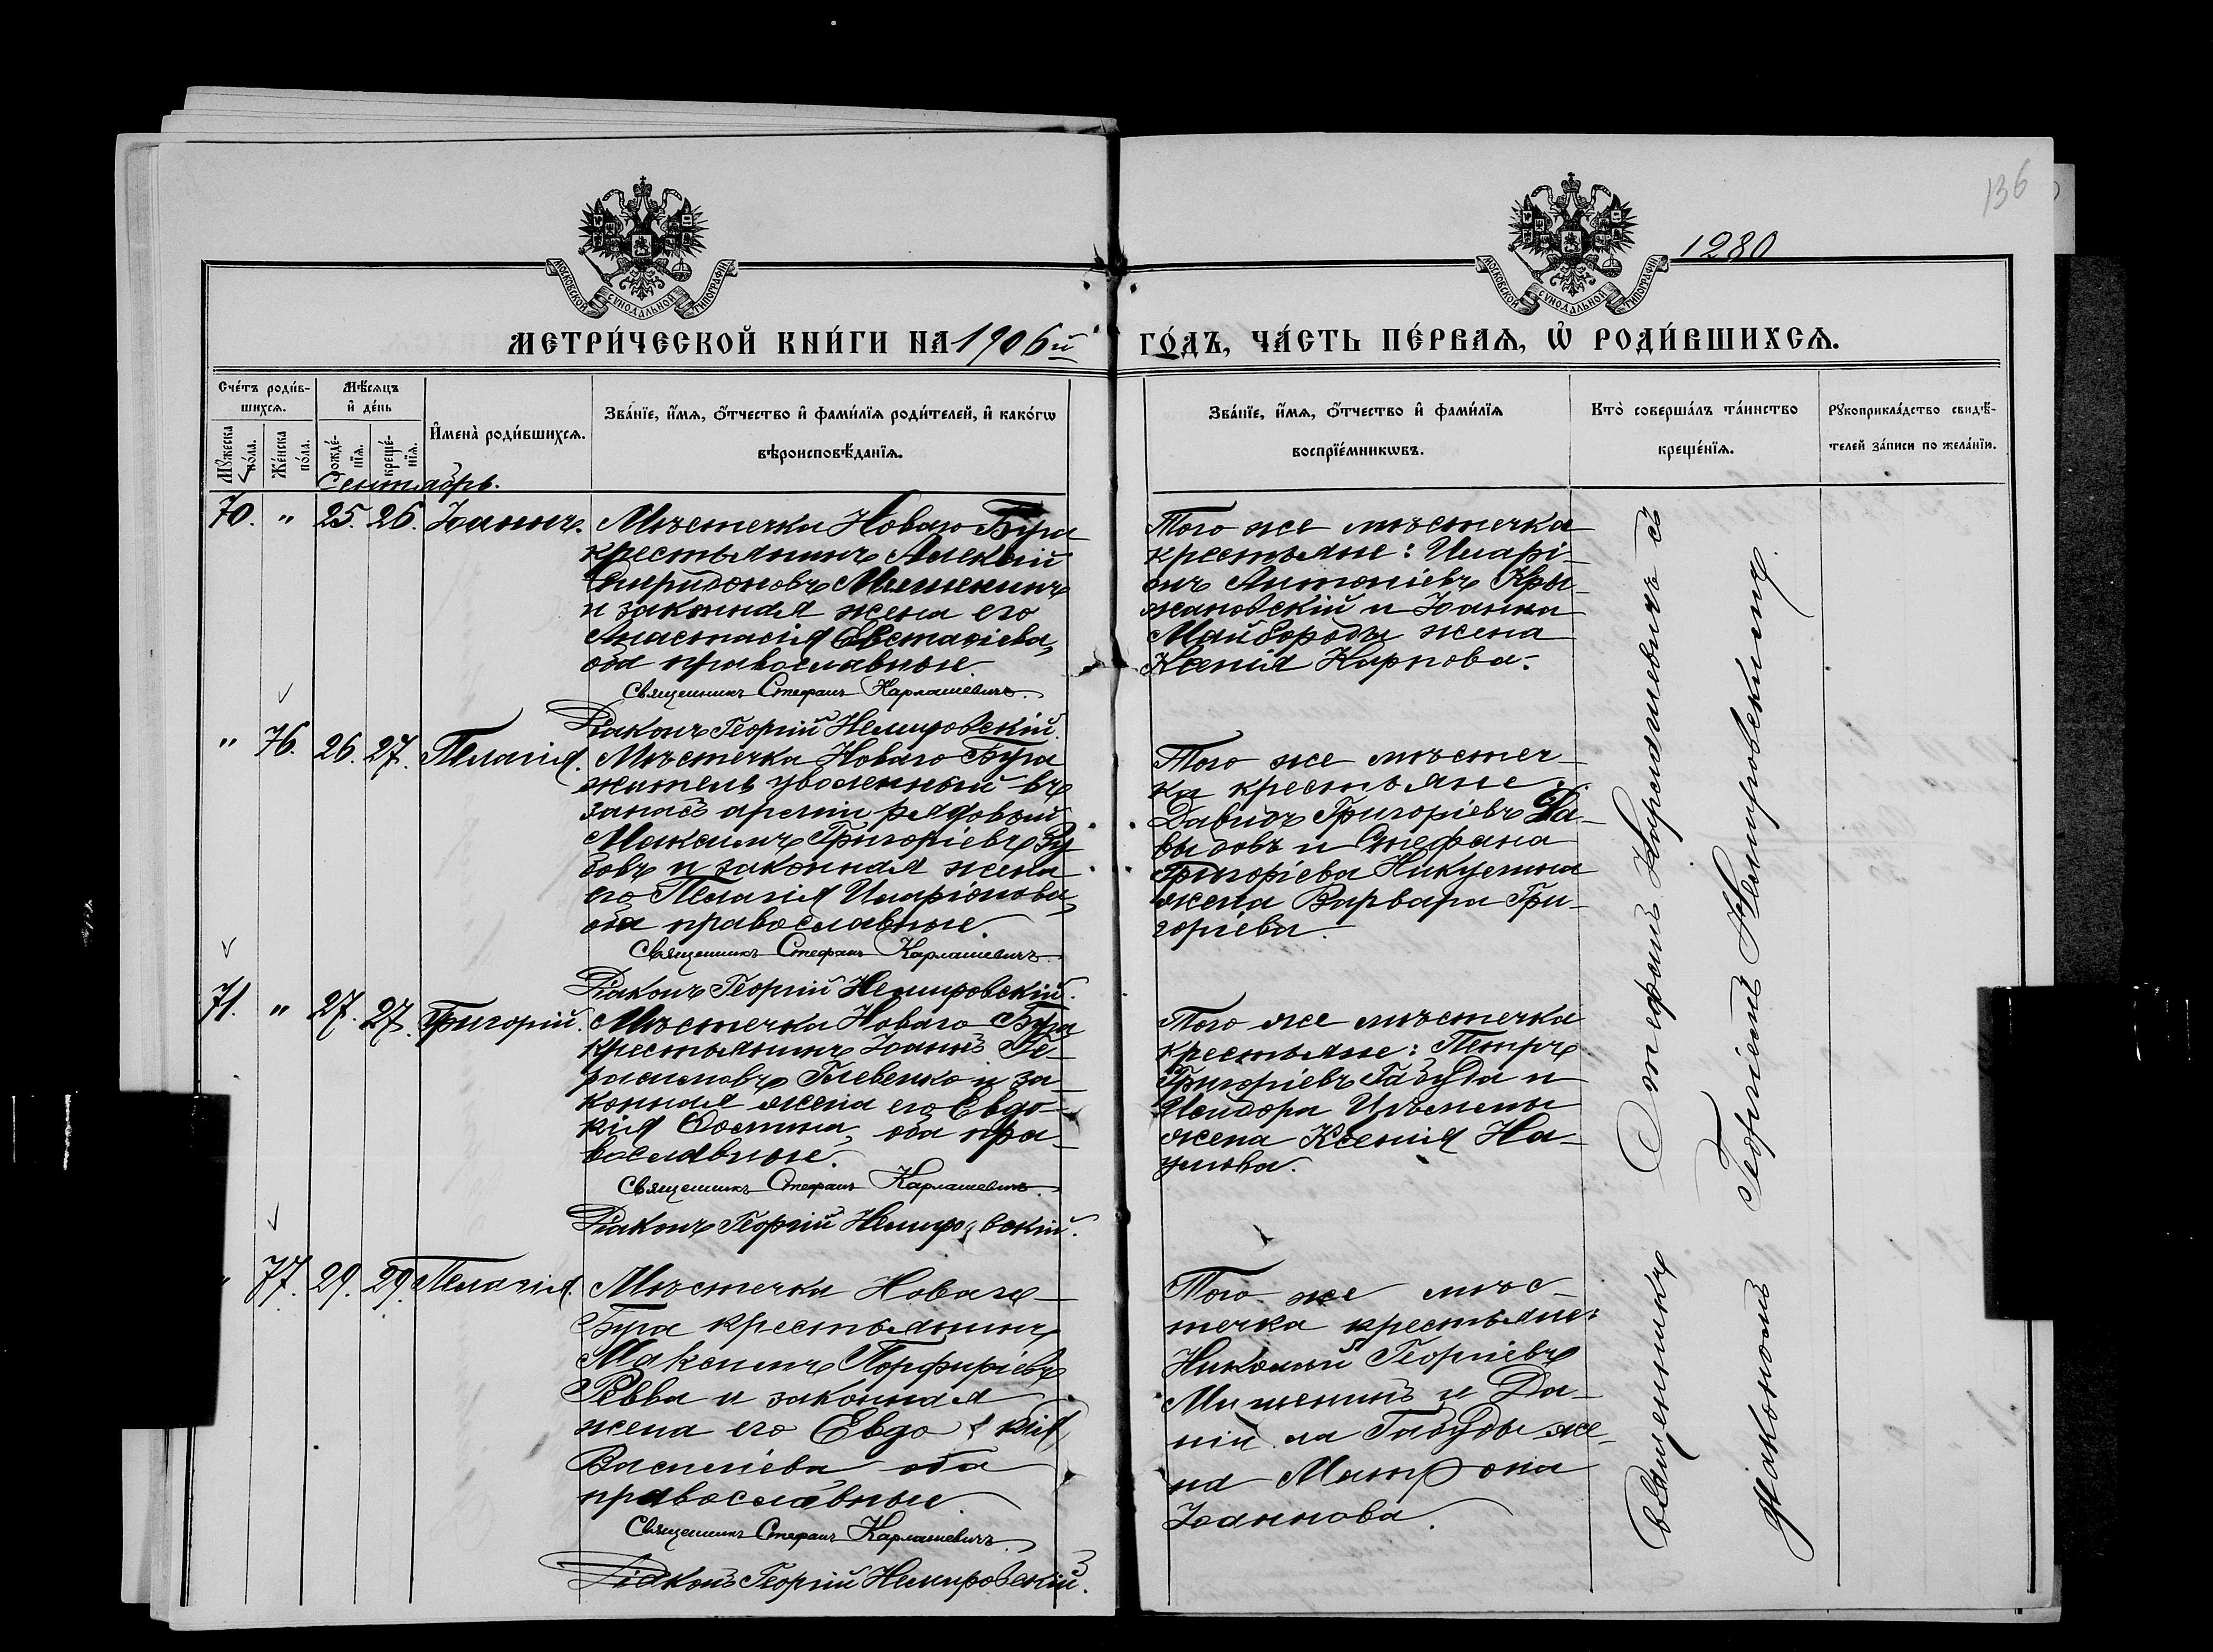 136
1280
МОСКОВСКОЙ СѴНОДАЛЬНОЙ ТИПОГРАФІИ
МОСКОВСКОЙ СѴНОДАЛЬНОЙ ТИПОГРАФІИ
МЕТРИ́ЧЕСКОЙ КНИ́ГИ НА 1906й
ГО́ДЪ, ЧА́СТЬ ПЕ́РВАѦ, Ѽ РОДИ́ВШИХСѦ.
Сче́тъ роди́в-
шихсѧ.
Мꙋ́жеска по́ла.
Же́нска по́ла.
Мѣ́сѧцъ
и҆ де́нь
рожде́-
нїѧ.
креще́-
нїѧ.
И҆мена̀ роди́вшихсѧ.
Зва́нїе, и҆́мѧ, ѻ҆́тчество и҆ фами́лїѧ роди́телей, и҆ како́гѡ
вѣроисповѣ́данїѧ.
Зва́нїе, и҆́мѧ, ѻ҆́тчество и҆ фами́лїѧ
воспрїе́мникѡвъ.
Кто̀ соверша́лъ та́инство
креще́нїѧ.
Рꙋкоприкла́дство свидѣ́-
телей за́писи по жела́нїю.
Сентябрь.
70. " 25. 26. Іоаннъ.
Мѣстечка Новаго Буга
крестьянинъ Алексій
Спиридоновъ Мишенинъ
и законная жена его
Анастасія Евстафіева,
оба православные.
Священникъ Стефанъ Карлашевичъ.
Діаконъ Георгій Немировскій.
Того же мѣстечка
крестьяне: Иларі-
онъ Антоніевъ Кры-
жановскій и Іоанна
Майбороды жена
Ксенія Карпова.
" 76. 26. 27. Пелагія.
Мѣстечка Новаго Буга
житель уволенный въ
запасъ арміи рядовой
Максимъ Григоріевъ Зу
бовъ и законная жена
его Пелагія Иларіонова,
оба православные.
Священникъ Стефанъ Карлашевичъ.
Діаконъ Георгій Немировскій.
Того же мѣстеч-
ка крестьяне:
Давидъ Григоріевъ Да-
выдовъ и Стефана
Григоріева Никулина
жена Варвара Гри-
горіева.
71. " 27. 27. Григорій.
Мѣстечка Новаго Буга
крестьянинъ Іоаннъ Ге-
расимовъ Глевенко и за-
конная жена его Евдо-
кія Фомина, оба пра-
вославные.
Священникъ Стефанъ Карлашевичъ.
Діаконъ Георгій Немировскій.
Того же мѣстечка
крестьяне: Петръ
Григоріевъ Габуда и
Исидора жена Ксенія На-
умова.
" 77. 29. 29. Пелагія.
Мѣстечка Новаго
Буга крестьянинъ
Максимъ Порфиріевъ
Ревва и законная
жена его Евдокія
Василіева оба
православные.
Священникъ Стефанъ Карлашевичъ.
Діаконъ Георгій Немировскій.
Того же мѣс-
течка крестьяне:
Николай Георгіевъ
Мишенинъ и Да-
ніила Габуды же-
на Матрона
Іоаннова.
Священникъ Стефанъ Карлашевичъ съ
діакономъ Георгіемъ Немировскимъ.